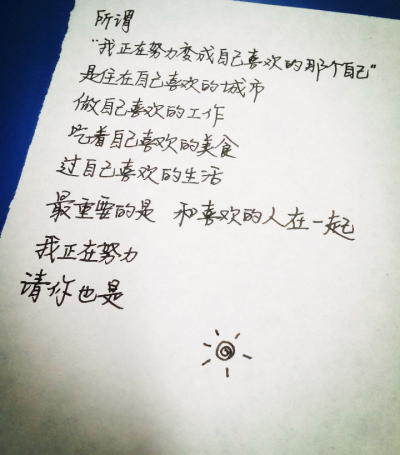 所谓
“我正在努力变成自己喜欢的那个自己”
是住在自己喜欢的城市
做自己喜欢的工作
吃着自己喜欢的美食
过自己喜欢的生活
最重要的是 和喜欢的人在一起
我正在努力
请你也是